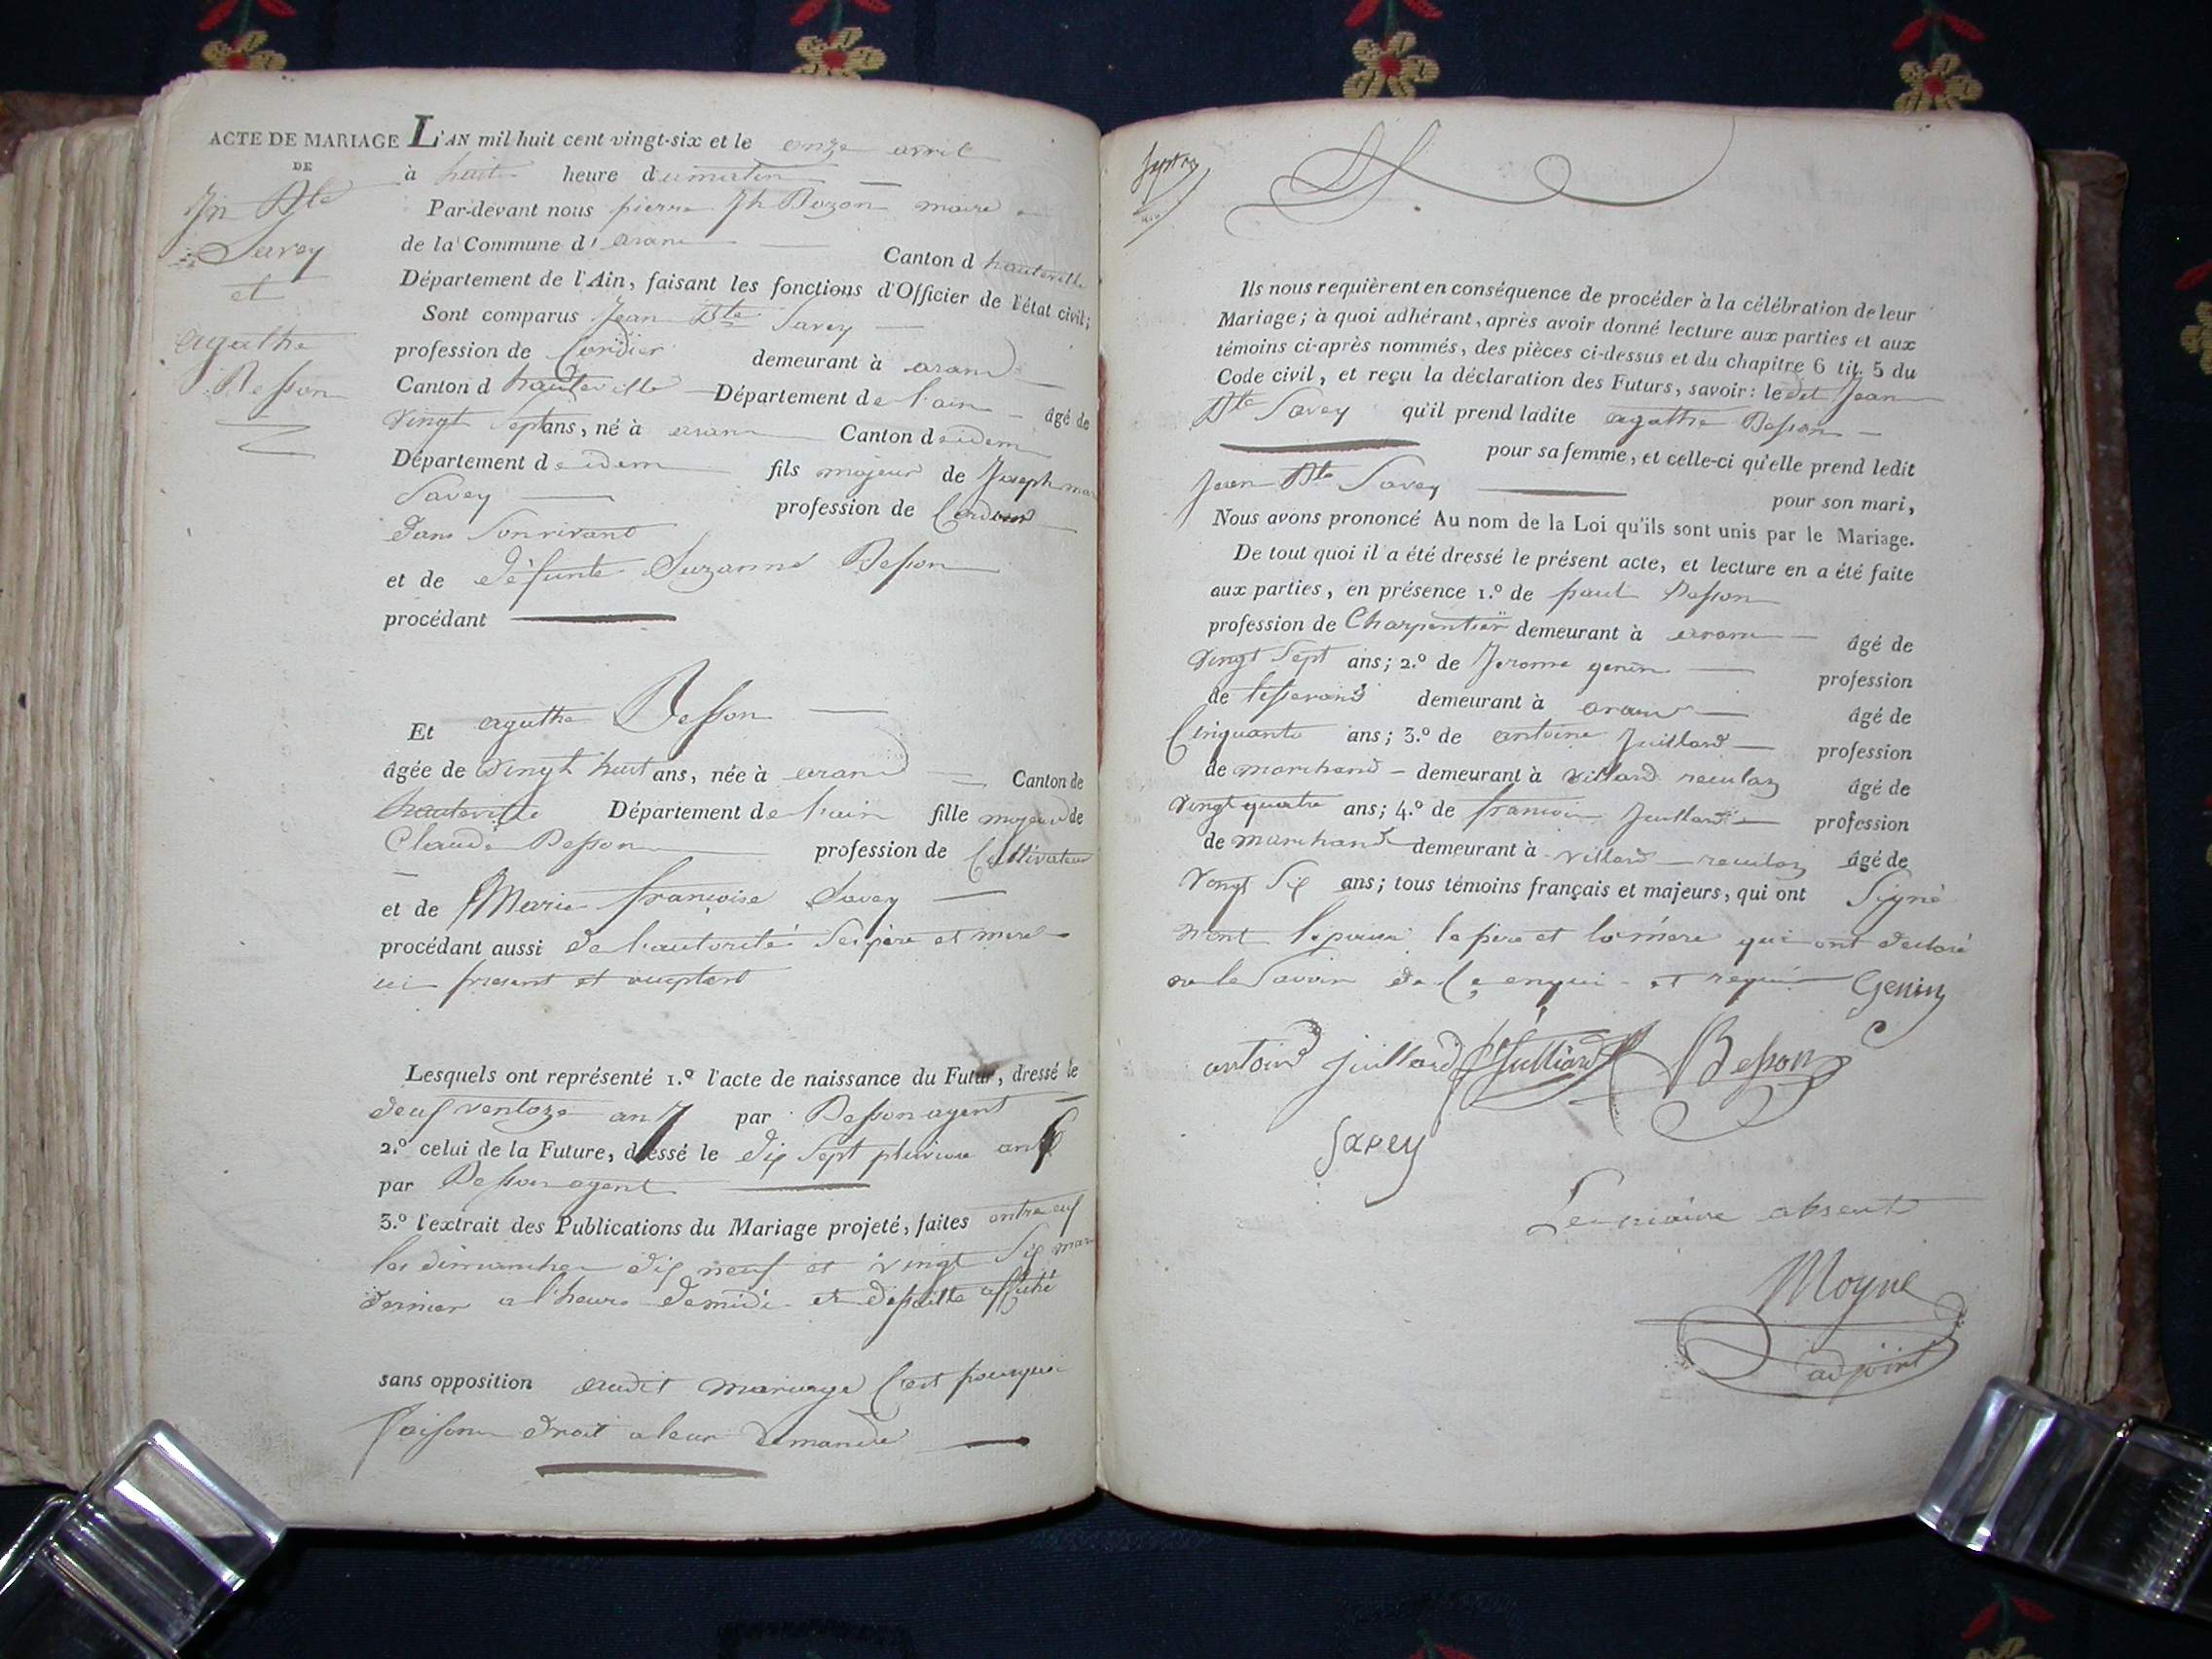 ACTE DE MARIAGE
DE
Jn Bte
Savey
et
agathe
Besson
L'AN mil huit cent vingt-six et le onze avril
à huit heure du matin
Par-devant nous pierre Jh Bozon maire
de la Commune d' aran Canton d hauteville
Département de l'Ain, faisant les fonctions d'Officier de l'état civil;
Sont comparus Jean Bte Savey
profession de Cordier demeurant à aran
Canton d hauteville Département de l'ain âgé de
vingt Sept ans, né à aran Canton d idem
Département d idem fils majeur de Joseph
Savey profession de
dans Son vivant
et de défunte Suzanne Besson
procédant
Et agathe Besson
âgée de vingt huit ans, née à aran Canton de
hauteville Département de l'ain fille majeur de
Claude Besson profession de Cultivateur
et de Marie françoise Savey
procédant aussi de l'autorité Ses père et mere
ici present et acceptant
Lesquels ont représenté 1.º l'acte de naissance du Futur, dressé le
neuf ventoze an 7 par Besson agent
2.º celui de la Future, dressé le dix Sept pluviose an 6
par Besson agent
3.º l'extrait des Publications du Mariage projeté, faites entre eux
les dimanches dix neuf et vingt Six mars
dernier a l'heure de midi et affiché
sans opposition audit mariage C'est pourquoi
faisons droit a leur demande
Ils nous requièrent en conséquence de procéder à la célébration de leur
Mariage; à quoi adhérant, après avoir donné lecture aux parties et aux
témoins ci-après nommés, des pièces ci-dessus et du chapitre 6 tit. 5 du
Code civil, et reçu la déclaration des Futurs, savoir: le dit Jean
Bte Savey qu'il prend ladite agathe Besson
pour sa femme, et celle-ci qu'elle prend ledit
Jean Bte Savey pour son mari,
Nous avons prononcé Au nom de la Loi qu'ils sont unis par le Mariage.
De tout quoi il a été dressé le présent acte, et lecture en a été faite
aux parties, en présence 1.º de paul Besson
profession de Charpentier demeurant à aran âgé de
vingt Sept ans; 2.º de Jerome genin profession
de tisserand demeurant à aran âgé de
Cinquante ans; 3.º de antoine Juillard profession
de marchand demeurant à villard âgé de
vingt quatre ans; 4.º de francois Juillard profession
de marchand demeurant à villard âgé de
vingt Six ans; tous témoins français et majeurs, qui ont Signé
non l'epouse le pere et la mere qui ont declaré
ne le Savoir de Ce enquis et requis Genin
antoine juillard Julliard Besson
Savey
Le maire absent
Moyne
adjoint